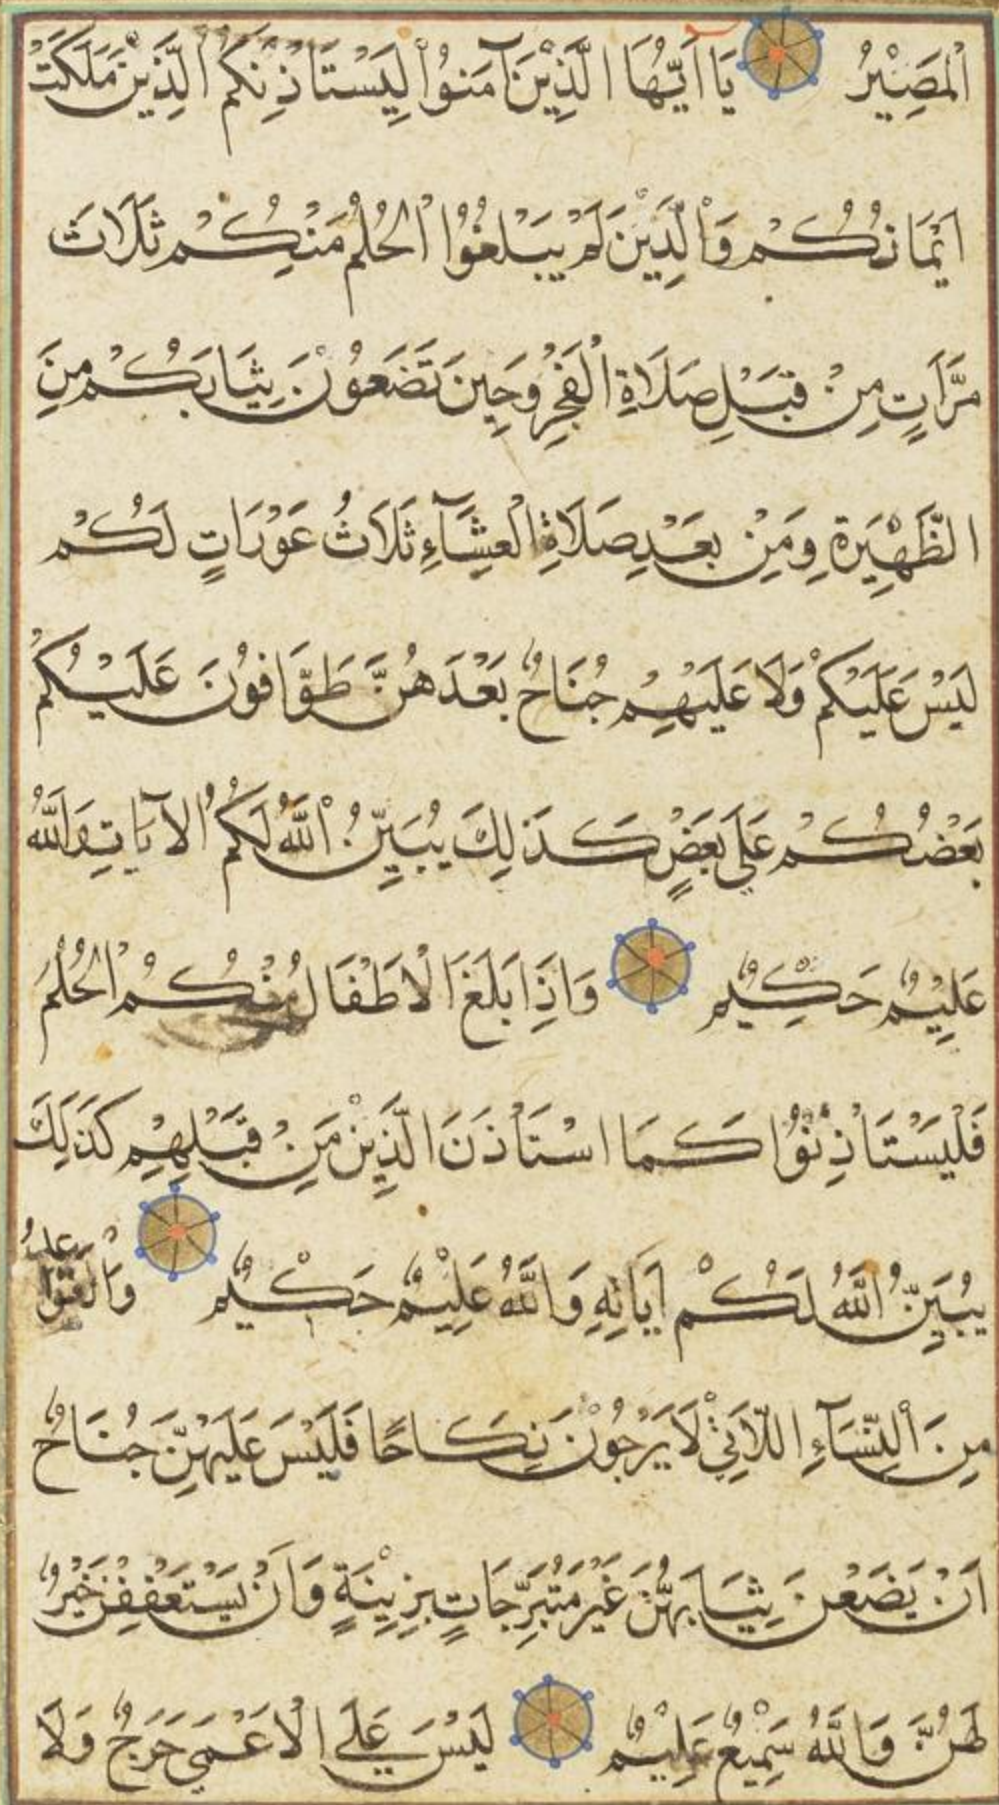 الْمَصِيْرُ يَا اَيُّهَا الَّذِيْنَ آمَنُوْا لِيَسْتَاْذِنْكُمُ الَّذِيْنَ مَلَكَتْ
اَيْمَانُكُمْ وَالَّذِيْنَ لَمْ يَبْلُغُوْا الْحُلُمَ مِنْكُمْ ثَلَاثَ
مَرَّاتٍ مِنْ قَبْلِ صَلَاةِ الْفَجْرِ وَحِينَ تَضَعُوْنَ ثِيَابَكُمْ مِنَ
الظَّهِيْرَةِ وَمِنْ بَعْدِ صَلَاةِ الْعِشَآءِ ثَلَاثُ عَوْرَاتٍ لَكُمْ
لَيْسَ عَلَيْكُمْ وَلَا عَلَيْهِمْ جُنَاحٌ بَعْدَهُنَّ طَوَّافُوْنَ عَلَيْكُمْ
بَعْضُكُمْ عَلَى بَعْضٍ كَذَلِكَ يُبَيِّنُ اللَّهُ لَكُمُ الْآيَاتِ وَاللَّهُ
عَلِيْمٌ حَكِيْمٌ وَاِذَا بَلَغَ الْاَطْفَالُ مِنْكُمْ الْحُلُمَ
فَلْيَسْتَاْذِنُوْا كَمَا اسْتَاْذَنَ الَّذِيْنَ مِنْ قَبْلِهِمْ كَذَلِكَ
يُبَيِّنُ اللَّهُ لَكُمْ آيَاتِهِ وَاللَّهُ عَلِيْمٌ حَكِيْمٌ
مِنَ النِّسَآءِ اللَّاتِيْ لَا يَرْجُوْنَ نِكَاحًا فَلَيْسَ عَلَيْهِنَّ جُنَاحٌ
اَنْ يَضَعْنَ ثِيَابَهُنَّ غَيْرَ مُتَبَرِّجَاتٍ بِزِيْنَةٍ وَاَنْ يَسْتَعْفِفْنَ خَيْرٌ
لَهُنَّ وَاللَّهُ سَمِيْعٌ عَلِيْمٌ لَيْسَ عَلَى الْاَعْمَى حَرَجٌ وَلَا